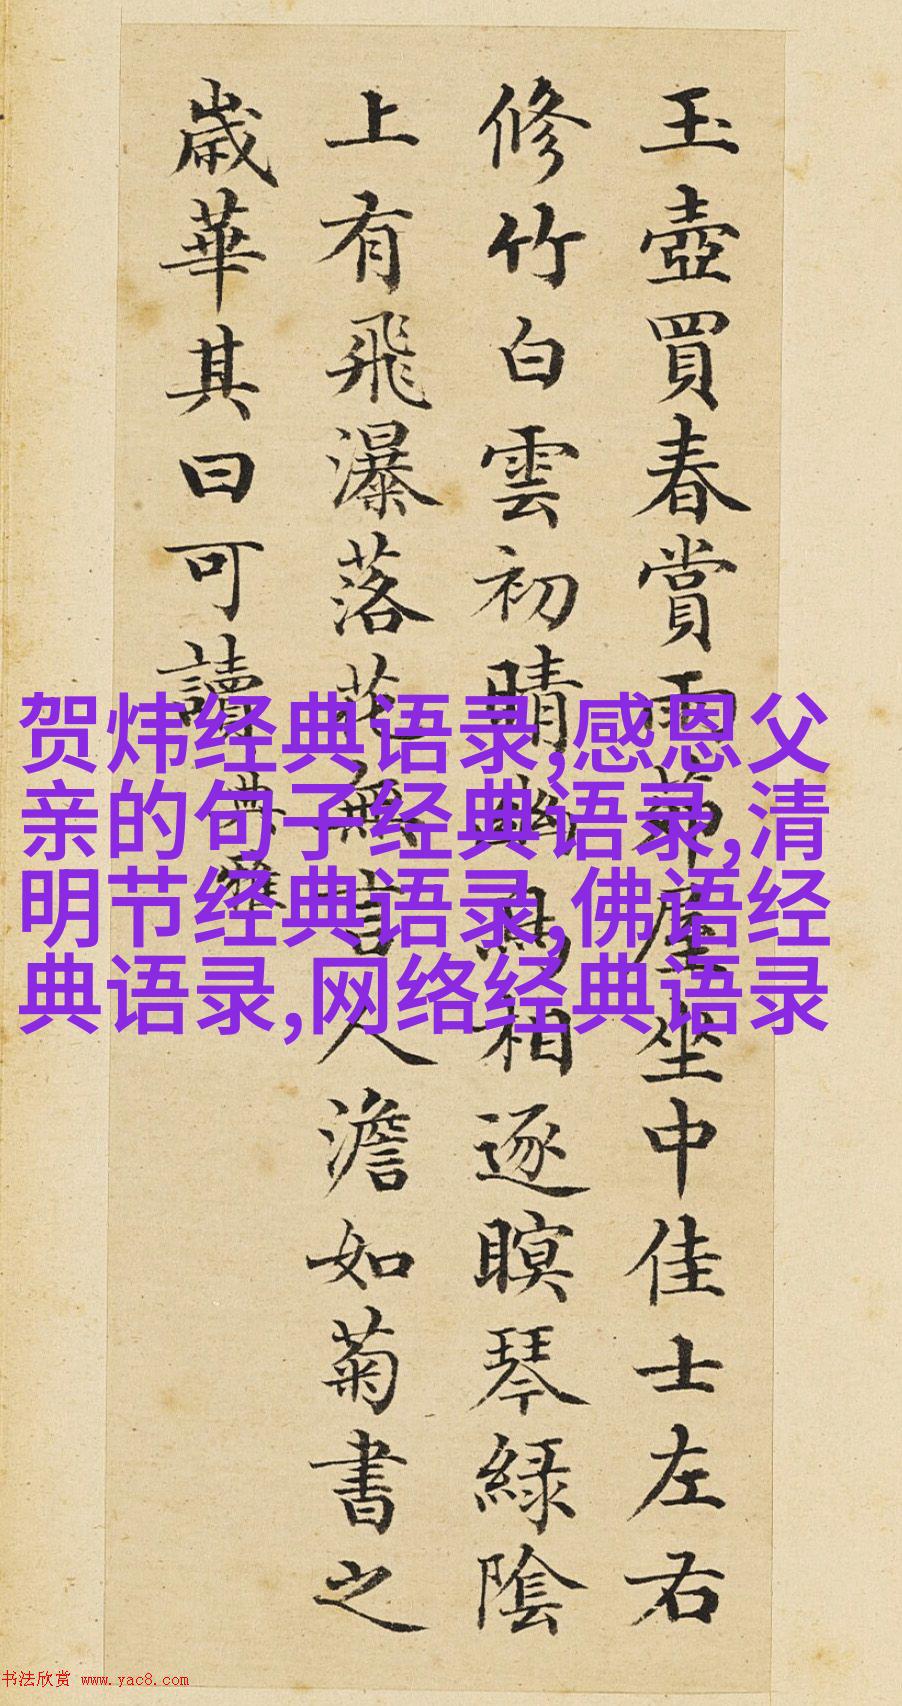 玉壺買春賞雨茆屋坐中佳士左右
修竹白雲初晴幽鳥相逐眠琴綠陰
上有飛瀑落花無言人澹如菊書之
歲華其曰可讀
典雅
贺炜经典语录,感恩父
亲的句子经典语录,清
明节经典语录,佛语经
典语录,网络经典语录
书法欣赏 www.yac8.com